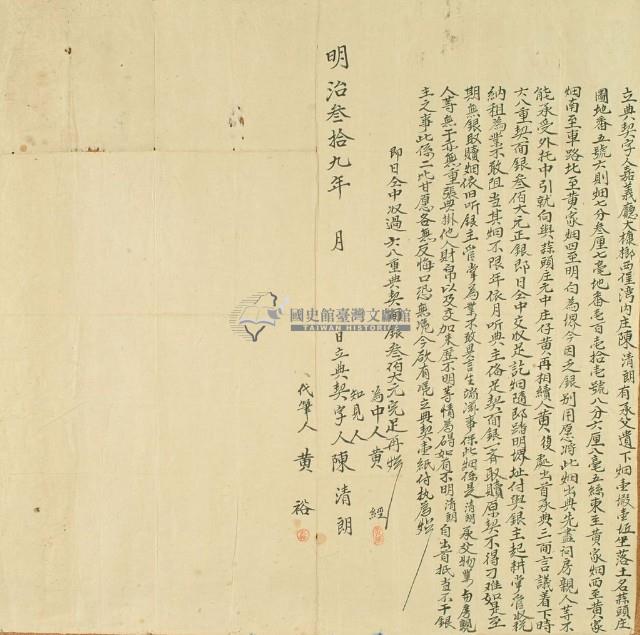 立典契字人嘉義廳大槺榔西堡灣內庄陳清朗有承父遺下畑壹假壹坵坐落土名蒜頭庄
圖地番五號六則畑七分叁厘七毫地番壱百壱拾壱號八分六厘八毫五絲東至黃家畑西至黃家
畑南至車路北至黃家畑四至明白為界今因乏銀別用愿將此畑出典先盡问房親人等不
能承受外托中引就向與蒜頭庄元中庄仔黃再相續人黃復處出首承典三面言議着下時
六八重契面銀叁佰大元正銀即日仝中交收足訖畑隨即踏明界址付與銀主起耕掌管收稅
納租為業不敢阻当其畑不限年依月听典主俻足契面銀一齊取贖原契不得刁难如是至
期無銀取贖畑依旧听銀主管掌為業不敢異言生端滋事保此畑係是清朗承父物業与房親
人等無干亦無重張典掛他人財帛以及交加来歷不明等情為碍如有不明清朗自出首抵当不干銀
主之事此係二比甘愿各無反悔口恐無憑今欲有憑立典契壹紙付执為炤
即日仝中収過六八重典契面銀叁佰大元完足再炤
為中人黃 經
知見人
明治叁拾九年 月 日立典契字人陳清朗
代筆人 黃 裕
國史館臺灣文獻館
TAIWAN HISTORICA